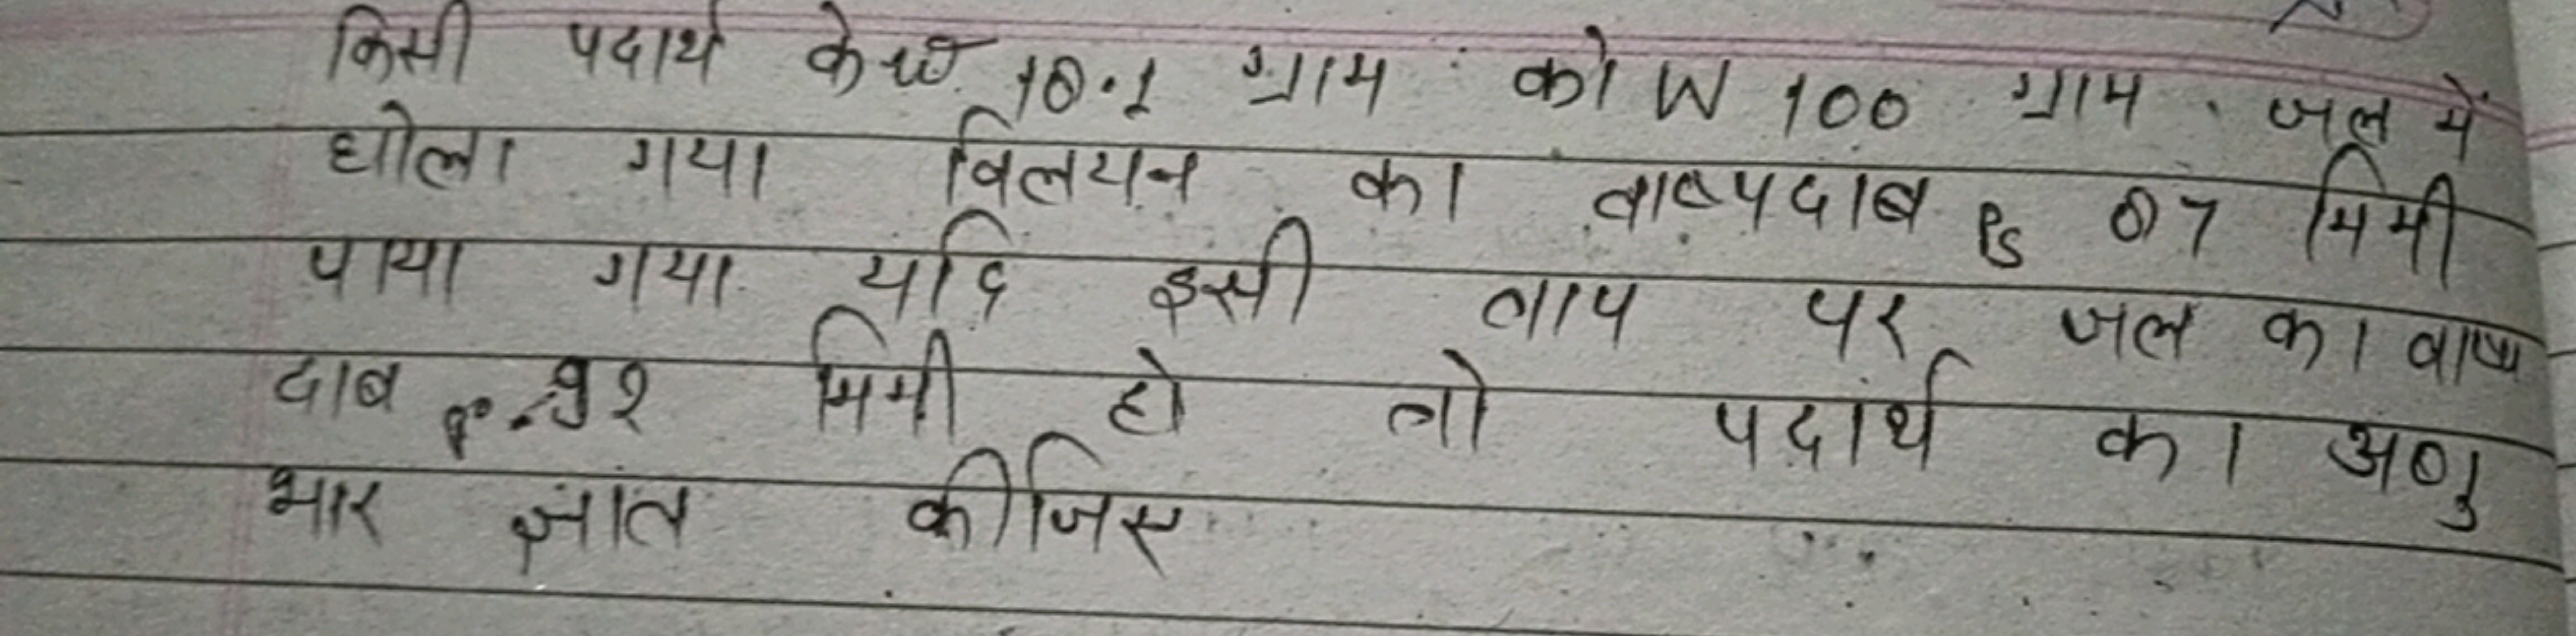 किसी पदार्थ के w 10.1 ग्राम को W 100 ग्राम जल में
घोला गया विलयन का वाष्पदाब Ps 07 मिमी
पाया गया यदि इसी ताप पर जल का वाष्प
दाब P° मिमी हो तो पदार्थ का अणु
भार ज्ञात कीजिए